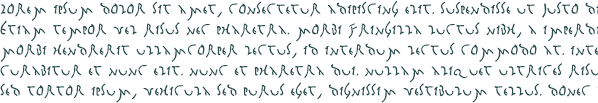 Lorem ipsum dolor sit amet, consectetur adipiscing elit. Suspendisse ut justo di
Etiam tempor vel risus nec pharetra. Morbi fringilla luctus nibh, a imperdi
Morbi hendrerit ullamcorper lectus, id interdum lectus commodo at. Inte
Curabitur et nunc elit. Nunc et pharetra dui. Nullam aliquet ultrices risu
Sed tortor ipsum, vehicula sed purus eget, dignissim vestibulum tellus. Donec